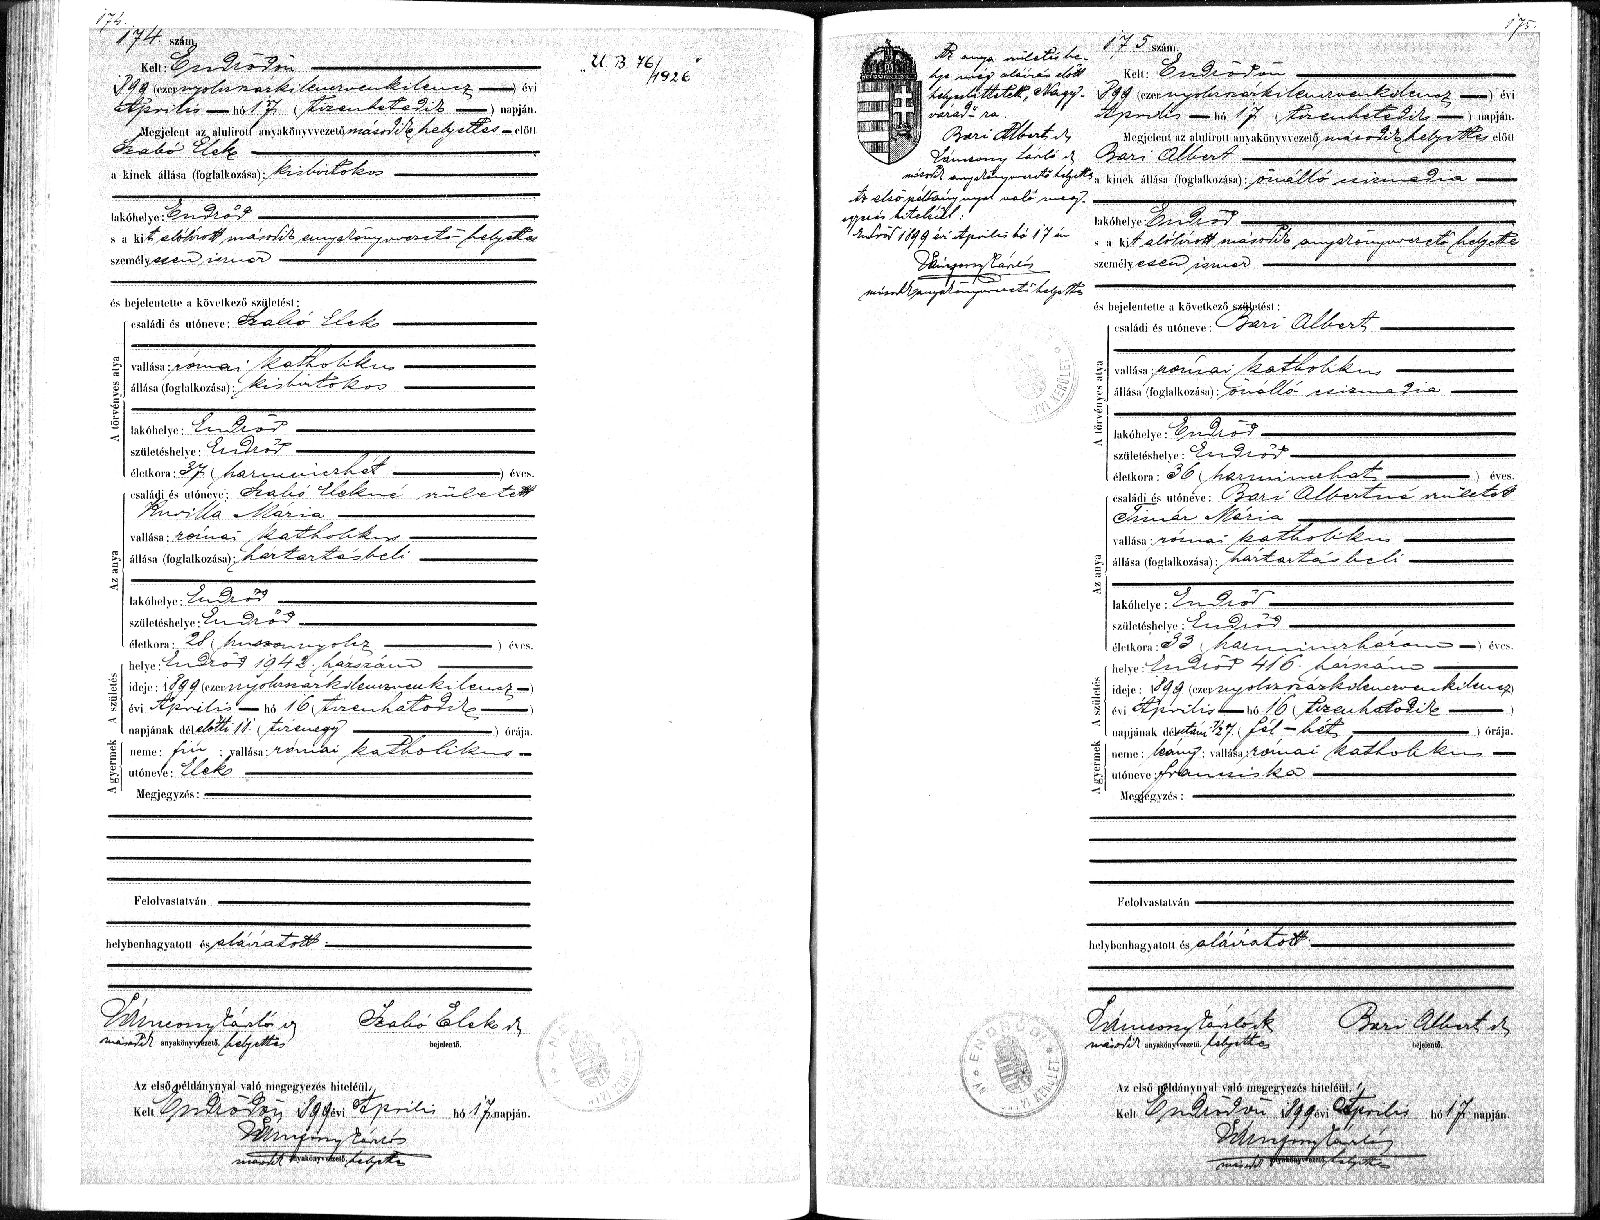 174.
174. szám.
Kelt: Endrődön
1899 (ezernyolczszázkilenczvenkilencz) évi
Április hó 17 (tizenhetedik) napján.
Megjelent az alulirott anyakönyvvezető második helyettes előtt
Szabó Elek
a kinek állása (foglalkozása): kisbirtokos
lakóhelye: Endrőd
s a kit alólirott második anyakönyvvezető helyettes
személyesen ismer
és bejelentette a következő születést:
A törvényes atya
családi és utóneve: Szabó Elek
vallása: római katholikus
állása (foglalkozása): kisbirtokos
lakóhelye: Endrőd
születéshelye: Endrőd
életkora: 37 (harminczhét) éves.
Az anya
családi és utóneve: Szabó Elekné született
Mária
vallása: római katholikus
állása (foglalkozása): háztartásbeli
lakóhelye: Endrőd
születéshelye: Endrőd
életkora: 28 (huszonnyolcz) éves.
A születés
helye: Endrőd 1942. házszám
ideje: 1899 (ezernyolczszázkilenczvenkilencz)
évi Április hó 16 (tizenhatodik)
napjának délelőtti 11 (tizenegy) órája.
A gyermek
neme: fiú; vallása: római katholikus
utóneve: Elek
Megjegyzés:
Felolvastatván
helybenhagyatott és aláíratott.
második anyakönyvvezető helyettes
Szabó Elek
bejelentő.
Az első példánynyal való megegyezés hiteléül.
Kelt Endrődön 1899 évi Április hó 17 napján.
második anyakönyvvezető helyettes
"U. B 76/1926"
175.
175 szám.
Kelt: Endrődön
1899 (ezernyolczszázkilenczvenkilencz) évi
Április hó 17 (tizenhetedik) napján.
Megjelent az alulirott anyakönyvvezető második helyettes előtt
Bari Albert
a kinek állása (foglalkozása): önálló csizmadia
lakóhelye: Endrőd
s a kit alólirott második anyakönyvvezető helyettes
személyesen ismer
és bejelentette a következő születést:
A törvényes atya
családi és utóneve: Bari Albert
vallása: római katholikus
állása (foglalkozása): önálló csizmadia
lakóhelye: Endrőd
születéshelye: Endrőd
életkora: 36 (harminczhat) éves.
Az anya
családi és utóneve: Bari Albertné született
Timár Mária
vallása: római katholikus
állása (foglalkozása): háztartásbeli
lakóhelye: Endrőd
születéshelye: Endrőd
életkora: 33 (harminczhárom) éves.
A születés
helye: Endrőd 416. házszám
ideje: 1899 (ezernyolczszázkilenczvenkilencz)
évi Április hó 16 (tizenhatodik)
napjának délutáni 1/2 7 (fél-hét) órája.
A gyermek
neme: leány; vallása: római katholikus
utóneve: Francziska
Megjegyzés:
Felolvastatván
helybenhagyatott és aláíratott.
második anyakönyvvezető helyettes
Bari Albert
bejelentő.
Az első példánynyal való megegyezés hiteléül.
Kelt Endrődön 1899 évi Április hó 17 napján.
második anyakönyvvezető helyettes
Az anya születési he-
lye még aláírás előtt
helyesbíttetett "Nagy-
várad"-ra.
Bari Albert
második anyakönyvvezető helyettes
Az első példánynyal való meg-
egyezés hiteléül:
Endrőd 1899 évi Április hó 17 én
második anyakönyvvezető helyettes